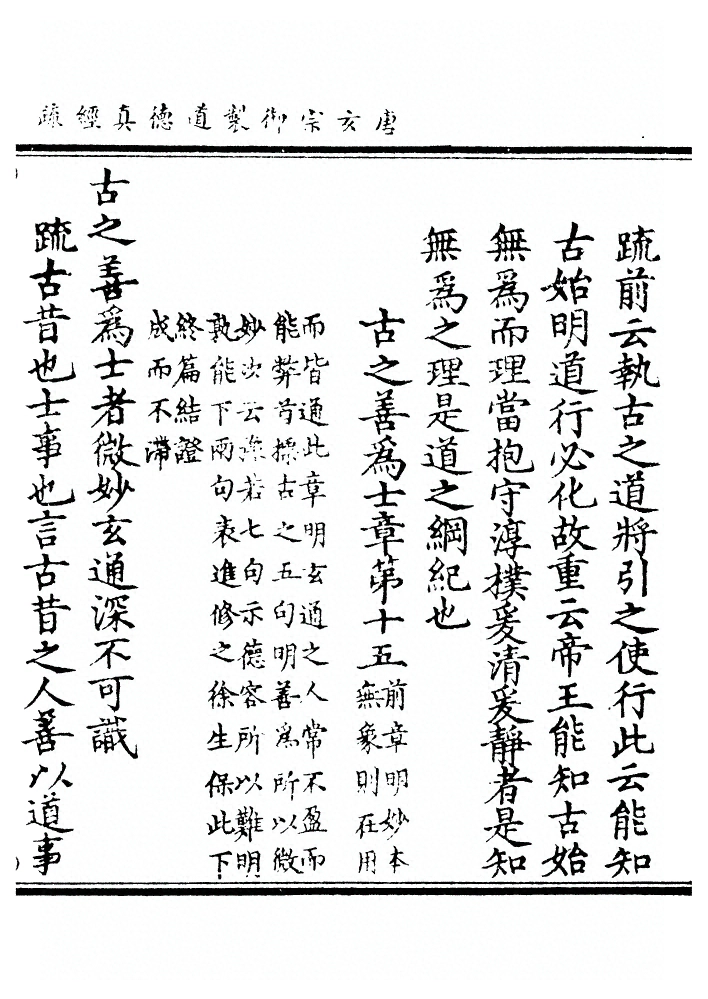 唐玄宗御製道德真經疏
疏前云執古之道將引之使行此云能知
古始明道行必化故重云帝王能知古始
無為而理當抱守淳樸爰清爰靜者是知
無為之理是道之綱紀也
古之善為士章第十五前章明妙本
無象則在用
而皆通此章明玄通之人常不盈而
能弊首標古之五句明善為所以微
妙次云若七句示德容所以難明
孰能下兩句表進修之徐生保此下
終篇結證
成而不滯
古之善為士者微妙玄通深不可識
疏古昔也士事也言古昔之人善以道事